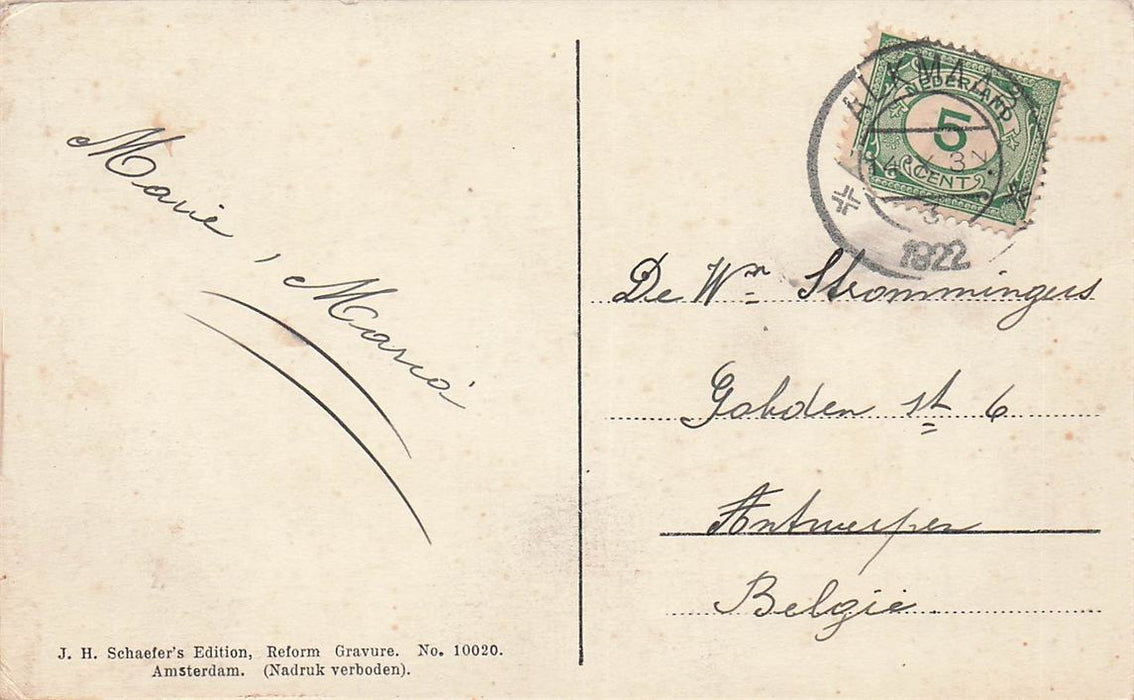 ALKMAAR
NEDERLAND
5
CENT
14 3 N
3
1922
Marie, Maria
De Wr Strommingers
Gobden st 6
Antwerpen
Belgie
J. H. Schaefer's Edition, Reform Gravure. No. 10020.
Amsterdam. (Nadruk verboden).